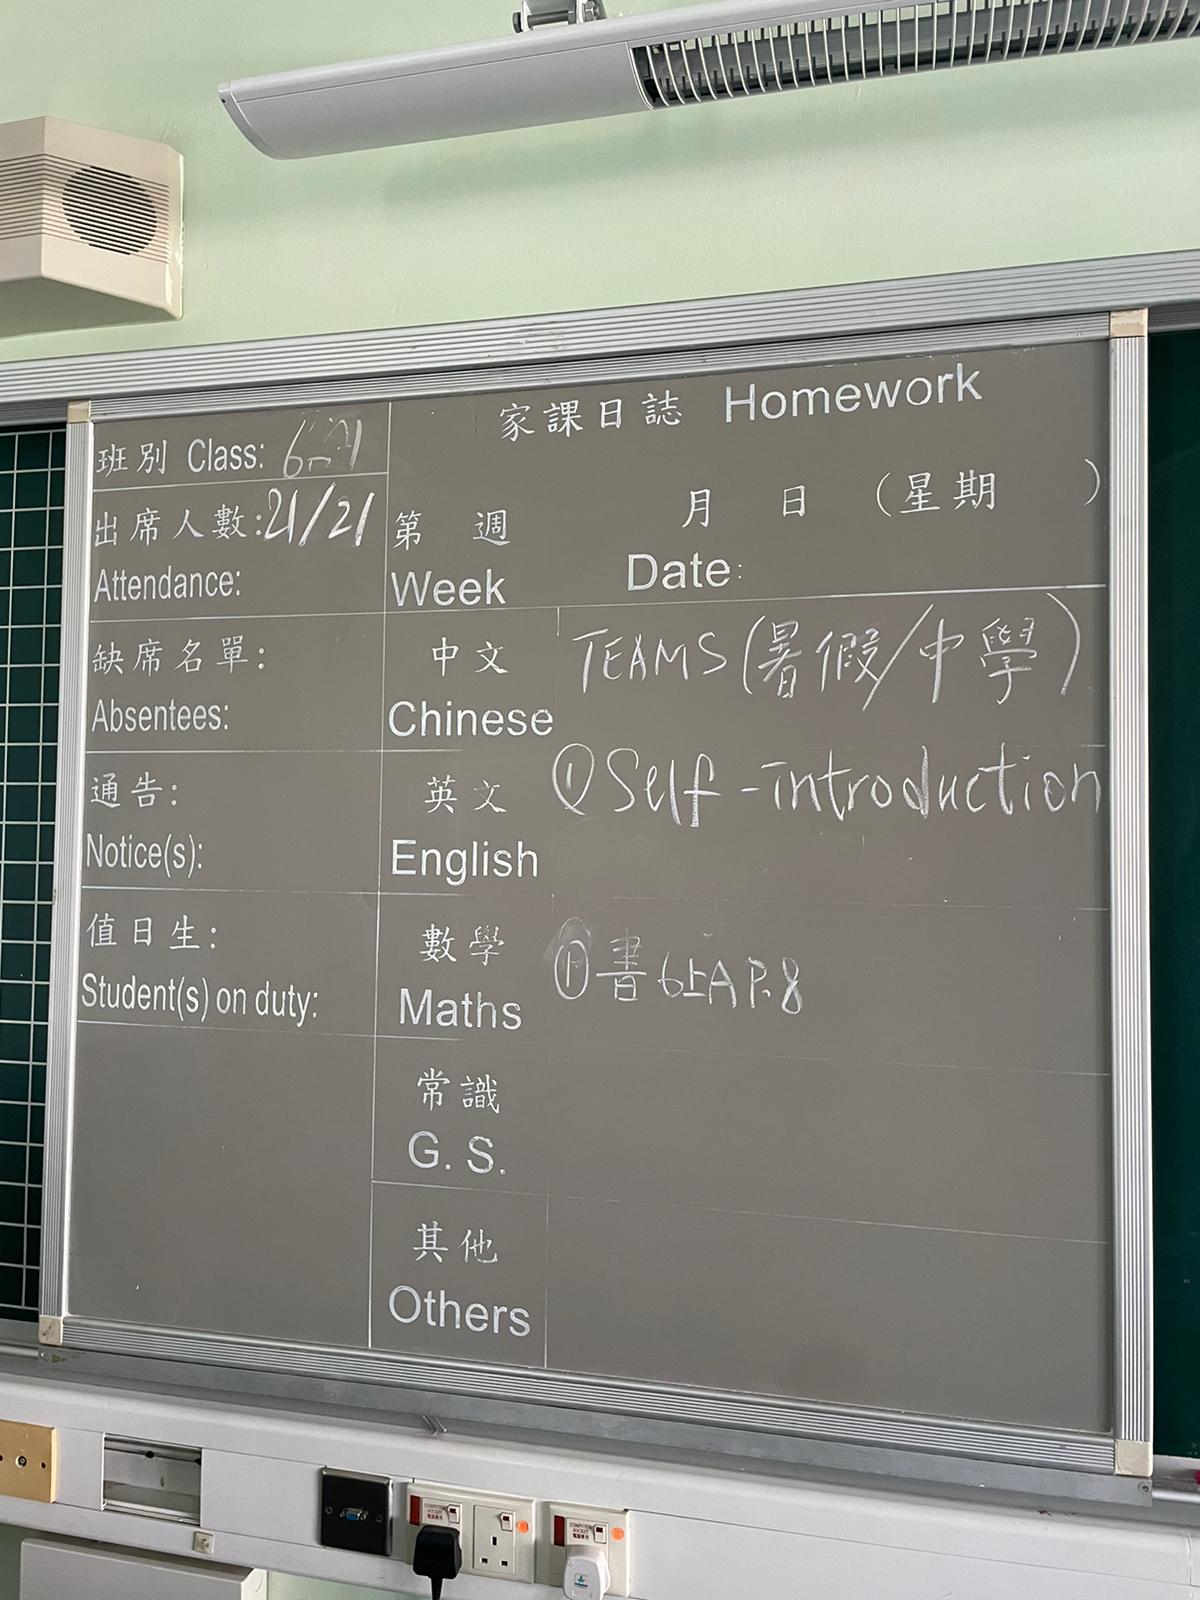 家課日誌 Homework
班別 Class:
出席人數: 21/21
Attendance:
第 週 月 日 (星期 )
Week Date:
缺席名單:
Absentees:
中文 TEAMS (暑假/中學)
Chinese
通告:
Notice(s):
英文 ① Self-introduction
English
值日生:
Student(s) on duty:
數學 ① 書 6上A P.8
Maths
常識
G. S.
其他
Others
COMPUTER SOCKET
COMPUTER SOCKET